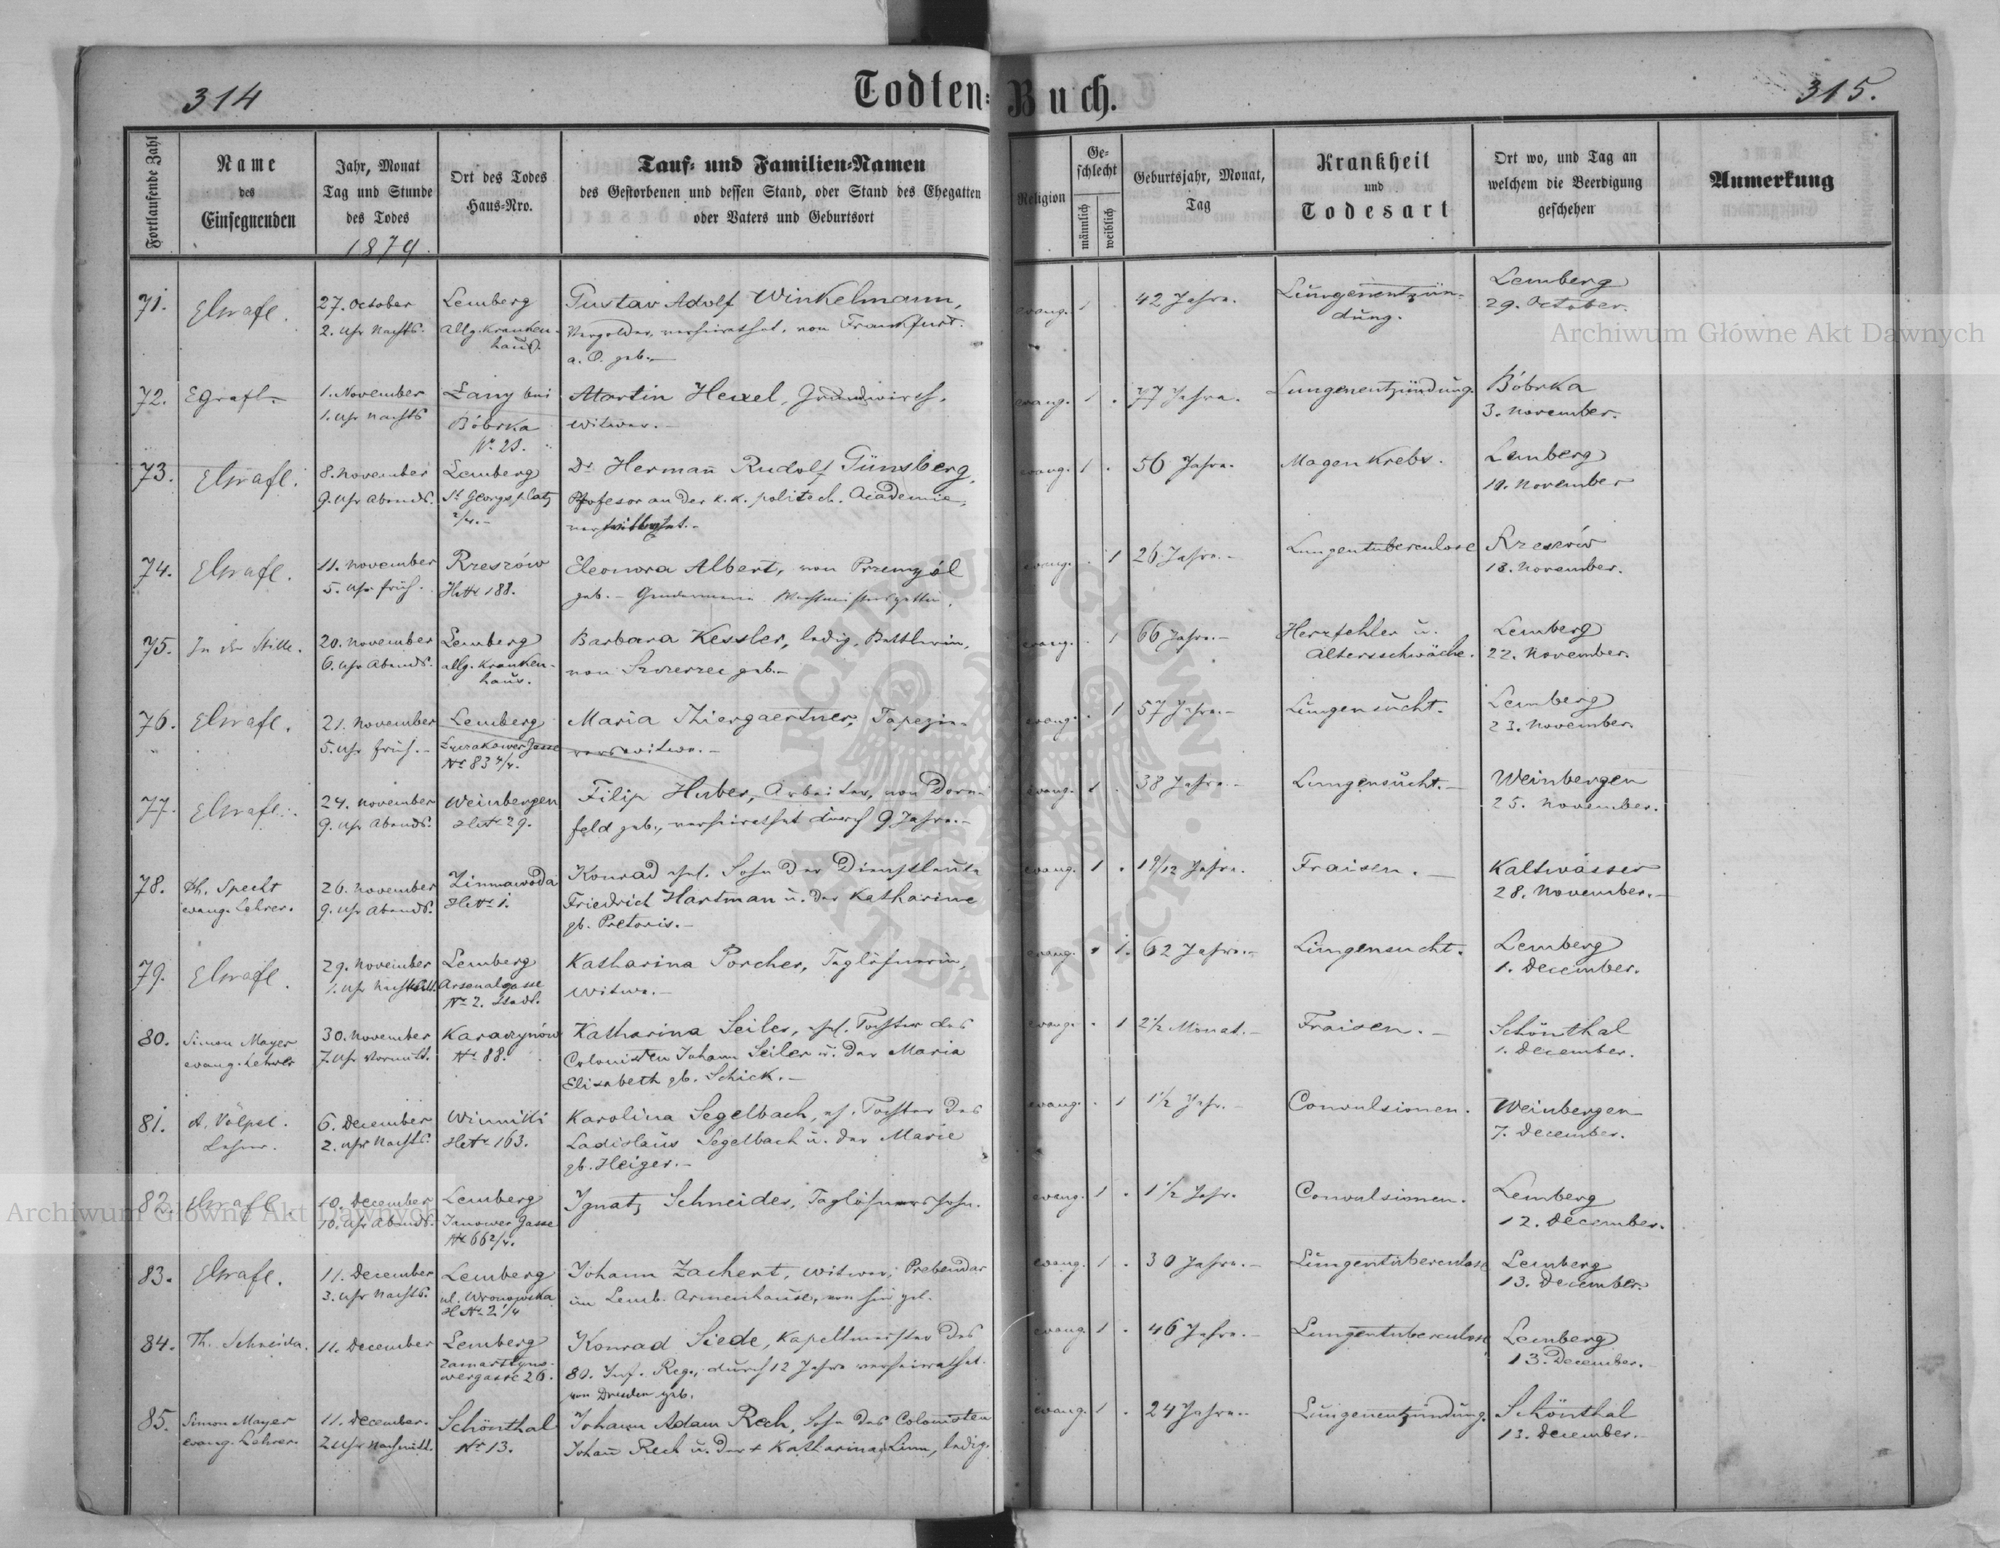 314
Todten-Buch.
315.
Fortlaufende Zahl
Name
des
Einsegnenden
Jahr, Monat
Tag und Stunde
des Todes
1879.
Ort des Todes
Haus-Nro.
Tauf- und Familien-Namen
des Gestorbenen und dessen Stand, oder Stand des Ehegatten
oder Vaters und Geburtsort
Religion
Ge-
schlecht
männlich
weiblich
Geburtsjahr, Monat,
Tag
Krankheit
und
Todesart
Ort wo, und Tag an
welchem die Beerdigung
geschehen
Anmerkung
71.
27. October
2. Uhr Nachts.
Lemberg
allg. Kranken-
haus.
Gustav Adolf Winkelmann,
Vergolder, verheirathet, von Frankfurt
a. O. geb.-
evang. 1 .
42 Jahre.
Lungenentzün-
dung.
Lemberg
29. October.
72.
1. November
1. Uhr Nachts
Łany bei
Bóbrka
Nr. 23.
Martin Hexel, Grundwirth,
Witwer.-
evang. 1 .
77 Jahre.
Lungenentzündung.
Bóbrka
3. November.
73.
8. November
9. Uhr Abends.
Lemberg
St Georgsplatz
2/4.-
Dr Hermañ Rudolf Günsberg,
Profesor an der k.k. politech. Academie,
evang. 1 .
56 Jahre.
Magenkrebs.
Lemberg
11. November
74.
11. November
5. Uhr früh.
Rzeszów
HNr 188.
Eleonora Albert, von Przemyśl
geb.- Gendarmerie Wachtmeistersgattin.
evang. . 1
26 Jahre.-
Lungentuberculose
Rzeszów
13. November.
75.
In der Stille.
20. November
6. Uhr Abends.
Lemberg
allg. Kranken-
haus.
Barbara Kessler, ledig, Bettlerin,
von Szczerzec geb.-
evang. . 1
66 Jahre.-
Herzfehler u.
Altersschwäche.
Lemberg
22. November.
76.
21. November
5. Uhr früh.-
Lemberg
Łyczakower Gasse
Nr 83 4/4.
Maria Thiergaertner, Tapezie-
rerswitwe.-
evang. . 1
57 Jahre.-
Lungensucht.
Lemberg
23. November.
77.
24. November
9. Uhr Abends.
Weinbergen
HNr 29.
Filip Huber, Arbeiter, von Dorn-
feld geb., verheirathet durch 9 Jahre.-
evang. 1 .
38 Jahre.-
Lungensucht.-
Weinbergen
25. November.
78.
Th. Specht
evang. Lehrer.
26. November
9. Uhr Abends.
Zimnawoda
HNr 1.
Konrad ehel. Sohn der Dienstleute
Friedrich Hartman u. der Katharine
gb. Pretoris.-
evang. 1 .
1 9/12 Jahre.
Fraisen.-
Kaltwasser
28. November.-
79.
29. November
Lemberg
Arsenalgasse
Nr 2. Stadt.
Katharina Porcher, Taglöhnerin,
Witwe.-
evang. . 1.
62 Jahre.-
Lungensucht.
Lemberg
1. December.
80.
Simon Mayer
evang. Lehrer
30. November
7. Uhr Vormitt.
Karaczynów
Nr 88.
Katharina Seiler, ehel. Tochter des
Colonisten Johann Seiler u. der Maria
Elisabeth gb. Schick.-
evang. . 1
2 1/2 Monat.-
Fraisen.-
Schönthal
1. December.
81.
A. Völpel.
Lehrer.
6. December
2. Uhr Nachts.
Winniki
HNr 163.
Karolina Segelbach, eh. Tochter des
Ladislaus Segelbach u. der Marie
gb. Heiger.-
evang. . 1
1 1/2 Jahr.-
Convulsionen.
Weinbergen
7. December.
82.
10. December
10. Uhr Abends.
Lemberg
Janower Gasse
Nr 66 2/4.
Ignatz Schneider, Taglöhnerssohn.
evang. 1 .
1 1/2 Jahr.
Convulsionen.
Lemberg
12. December.
83.
11. December
3. Uhr Nachts.
Lemberg
HNr 2 1/4
Johann Zachert, Witwer, Prebendar
im Lemb. Armenhause, von hier geb.
evang. 1 .
30 Jahre.-
Lungentuberculose
Lemberg
13. December.
84.
Th. Schneider.
11. December
Lemberg
Zamarstyno-
wergasse 26.
Konrad Siede, Kapellmeister des
80. Inf. Reg., durch 12 Jahre verheirathet.
von Dresden geb.
evang. 1 .
46 Jahre.-
Lungentuberculose
Lemberg
13. December.
85.
Simon Mayer
evang. Lehrer.
11. December.
2 Uhr Nachmitt.
Schönthal
Nr 13.
Johann Adam Rech, Sohn des Colonisten
Johañ Rech u. der + Katharina Linn, ledig.
evang. 1 .
24 Jahre.
Lungenentzündung.
Schönthal
13. December.
Archiwum Główne Akt Dawnych
Archiwum Główne Akt Dawnych
ARCHIWUM GŁÓWNE
AKT DAWNYCH